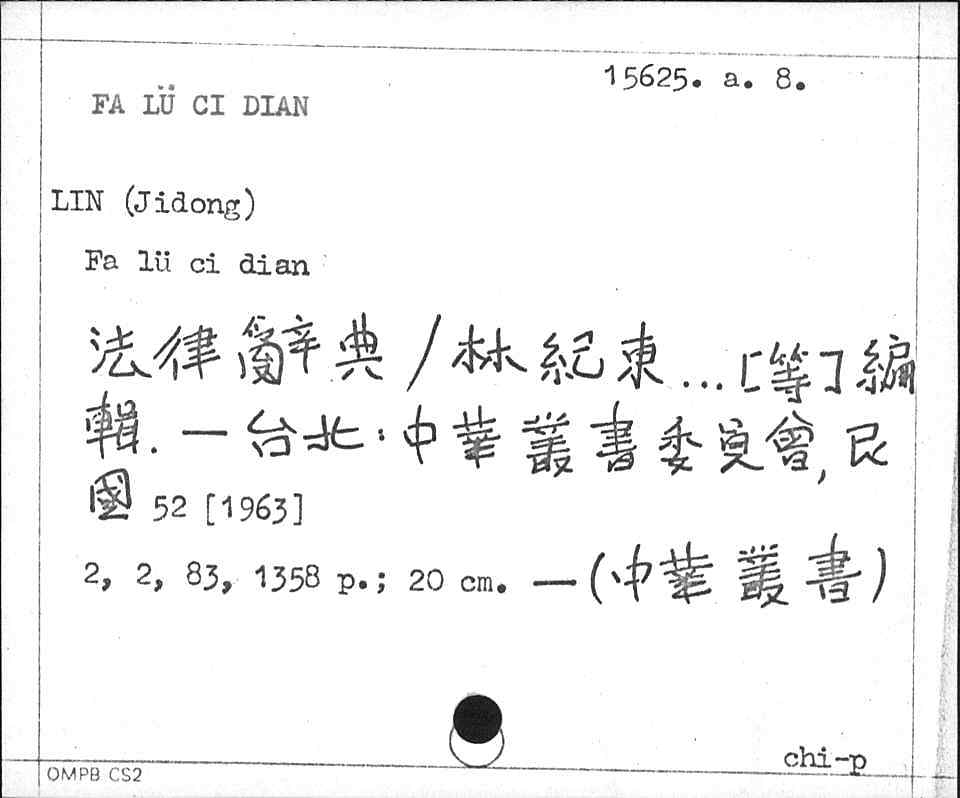 15625. a. 8.
FA LÜ CI DIAN
LIN (Jidong)
Fa lü ci dian
法律辭典 / 林紀東 ... [等] 編
輯. — 台北 : 中華叢書委員會, 民
國 52 [1963]
2, 2, 83, 1358 p.; 20 cm. — (中華叢書)
chi-p
OMPB CS2